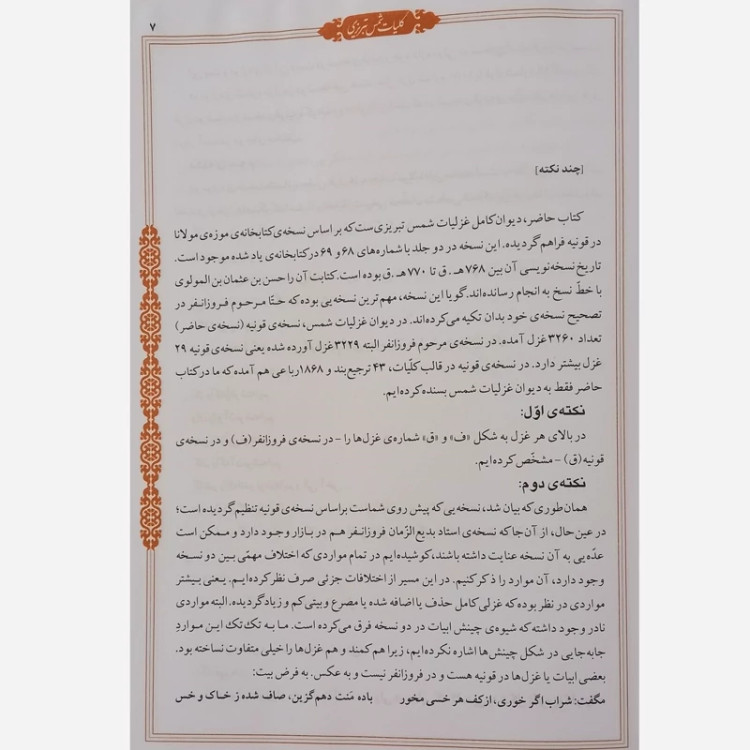 ۷
کلیات شمس تبریزی
[چند نکته]
کتاب حاضر، دیوان کامل غزلیات شمس تبریزی‌ست که بر اساس نسخه‌ی کتابخانه‌ی موزه‌ی مولانا
در قونیه فراهم گردیده. این نسخه در دو جلد با شماره‌های ۶۸ و ۶۹ در کتابخانه‌ی یاد شده موجود است.
تاریخ نسخه‌نویسی آن بین ۷۶۸ هـ . ق تا ۷۷۰ هـ .ق بوده است. کتابت آن را حسن بن عثمان بن المولوی
با خطّ نسخ به انجام رسانده‌اند. گویا این نسخه، مهم‌ترین نسخه‌یی بوده که حتّا مرحوم فروزانفر در
تصحیح نسخه‌ی خود بدان تکیه می‌کرده‌اند. در دیوان غزلیات شمس، نسخه‌ی قونیه (نسخه‌ی حاضر)
تعداد ۳۲۶۰ غزل آمده. در نسخه‌ی مرحوم فروزانفر البته ۳۲۲۹ غزل آورده شده یعنی نسخه‌ی قونیه ۲۹
غزل بیشتر دارد. در نسخه‌ی قونیه در قالب کلّیات، ۴۳ ترجیع‌بند و ۱۸۶۸ رباعی هم آمده که ما در کتاب
حاضر فقط به دیوان غزلیات شمس بسنده کرده‌ایم.
نکته‌ی اوّل:
در بالای هر غزل به شکل «ف» و «ق» شماره‌ی غزل‌ها را - در نسخه‌ی فروزانفر (ف) و در نسخه‌ی
قونیه (ق) - مشخّص کرده‌ایم.
نکته‌ی دوم:
همان‌طوری که بیان شد، نسخه‌یی که پیش روی شماست براساس نسخه‌ی قونیه تنظیم گردیده است؛
در عین حال، از آن‌جا که نسخه‌ی استاد بدیع‌الزّمان فروزانفر هم در بازار وجود دارد و ممکن است
عدّه‌یی به آن نسخه عنایت داشته باشند، کوشیده‌ایم در تمام مواردی که اختلاف مهمّی بین دو نسخه
وجود دارد، آن موارد را ذکر کنیم. در این مسیر از اختلافات جزئی صرف نظر کرده‌ایم. یعنی بیشتر
مواردی در نظر بوده که غزلی کامل حذف یا اضافه شده یا مصرع و بیتی کم و زیاد گردیده. البته مواردی
نادر وجود داشته که شیوه‌ی چینش ابیات در دو نسخه فرق می‌کرده است. ما به تک‌تک این مواردِ
جابه‌جایی در شکل چینش‌ها اشاره نکرده‌ایم، زیرا هم کمند و هم غزل‌ها را خیلی متفاوت نساخته بود.
بعضی ابیات یا غزل‌ها در قونیه هست و در فروزانفر نیست و به عکس. به فرض بیت:
مگفت: شراب اگر خوری، از کف هر خسی مخور باده مَنت دهم گزین، صاف شده ز خاک و خس